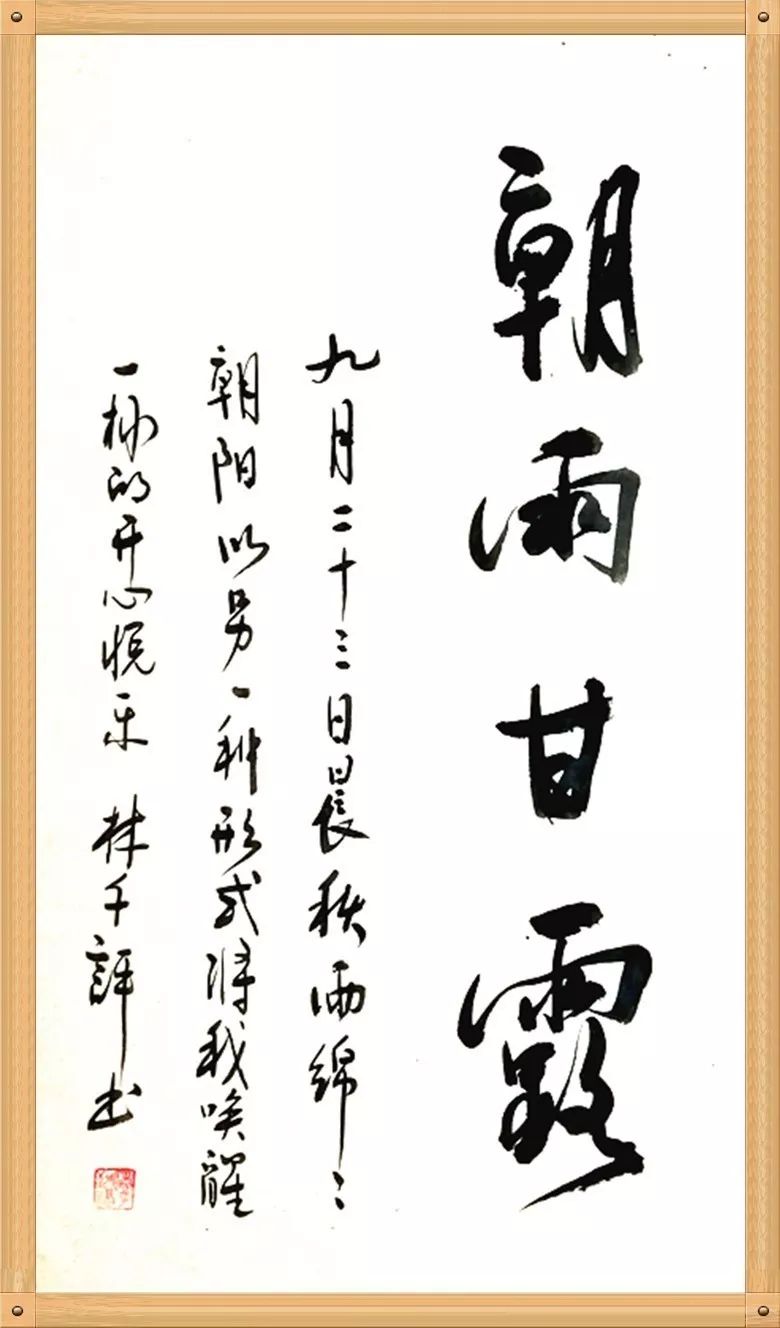 朝雨甘露
九月二十三日晨秋雨綿〻
朝阳以另一种形式将我唤醒
一样的开心悦乐 林千評书